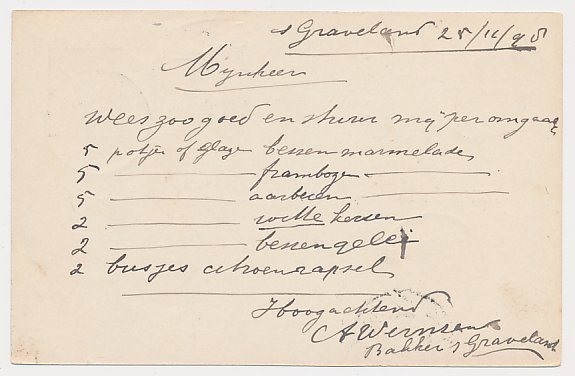 s Graveland 25/11/98
Mijnheer
Wees zoo goed en stuur mij per omgaande
5 potjes of glazen bessen marmelade
5 ——— framboze ———
5 ——— aarbeien ———
2 ——— witte kersen
2 ——— bessengelei
2 busjes citroenrapsel
Hoogachtend
A Wernsen
Bakker s Graveland